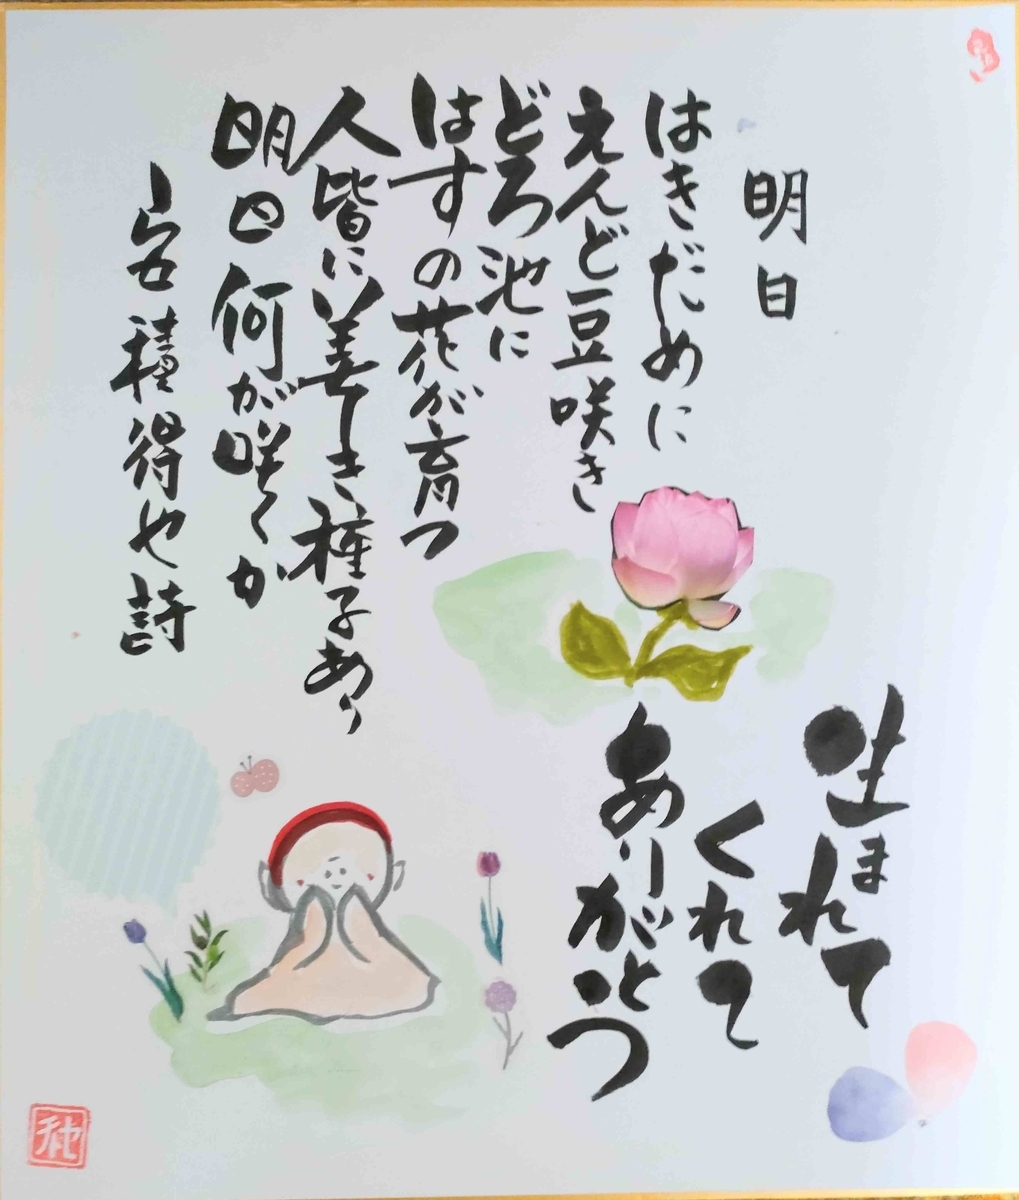 明日
はきだめに
えんど豆咲き
どろ池に
はすの花が育つ
人皆に美しき種子あり
明日何が咲くか
安積得也詩
生まれて
くれて
ありがとう